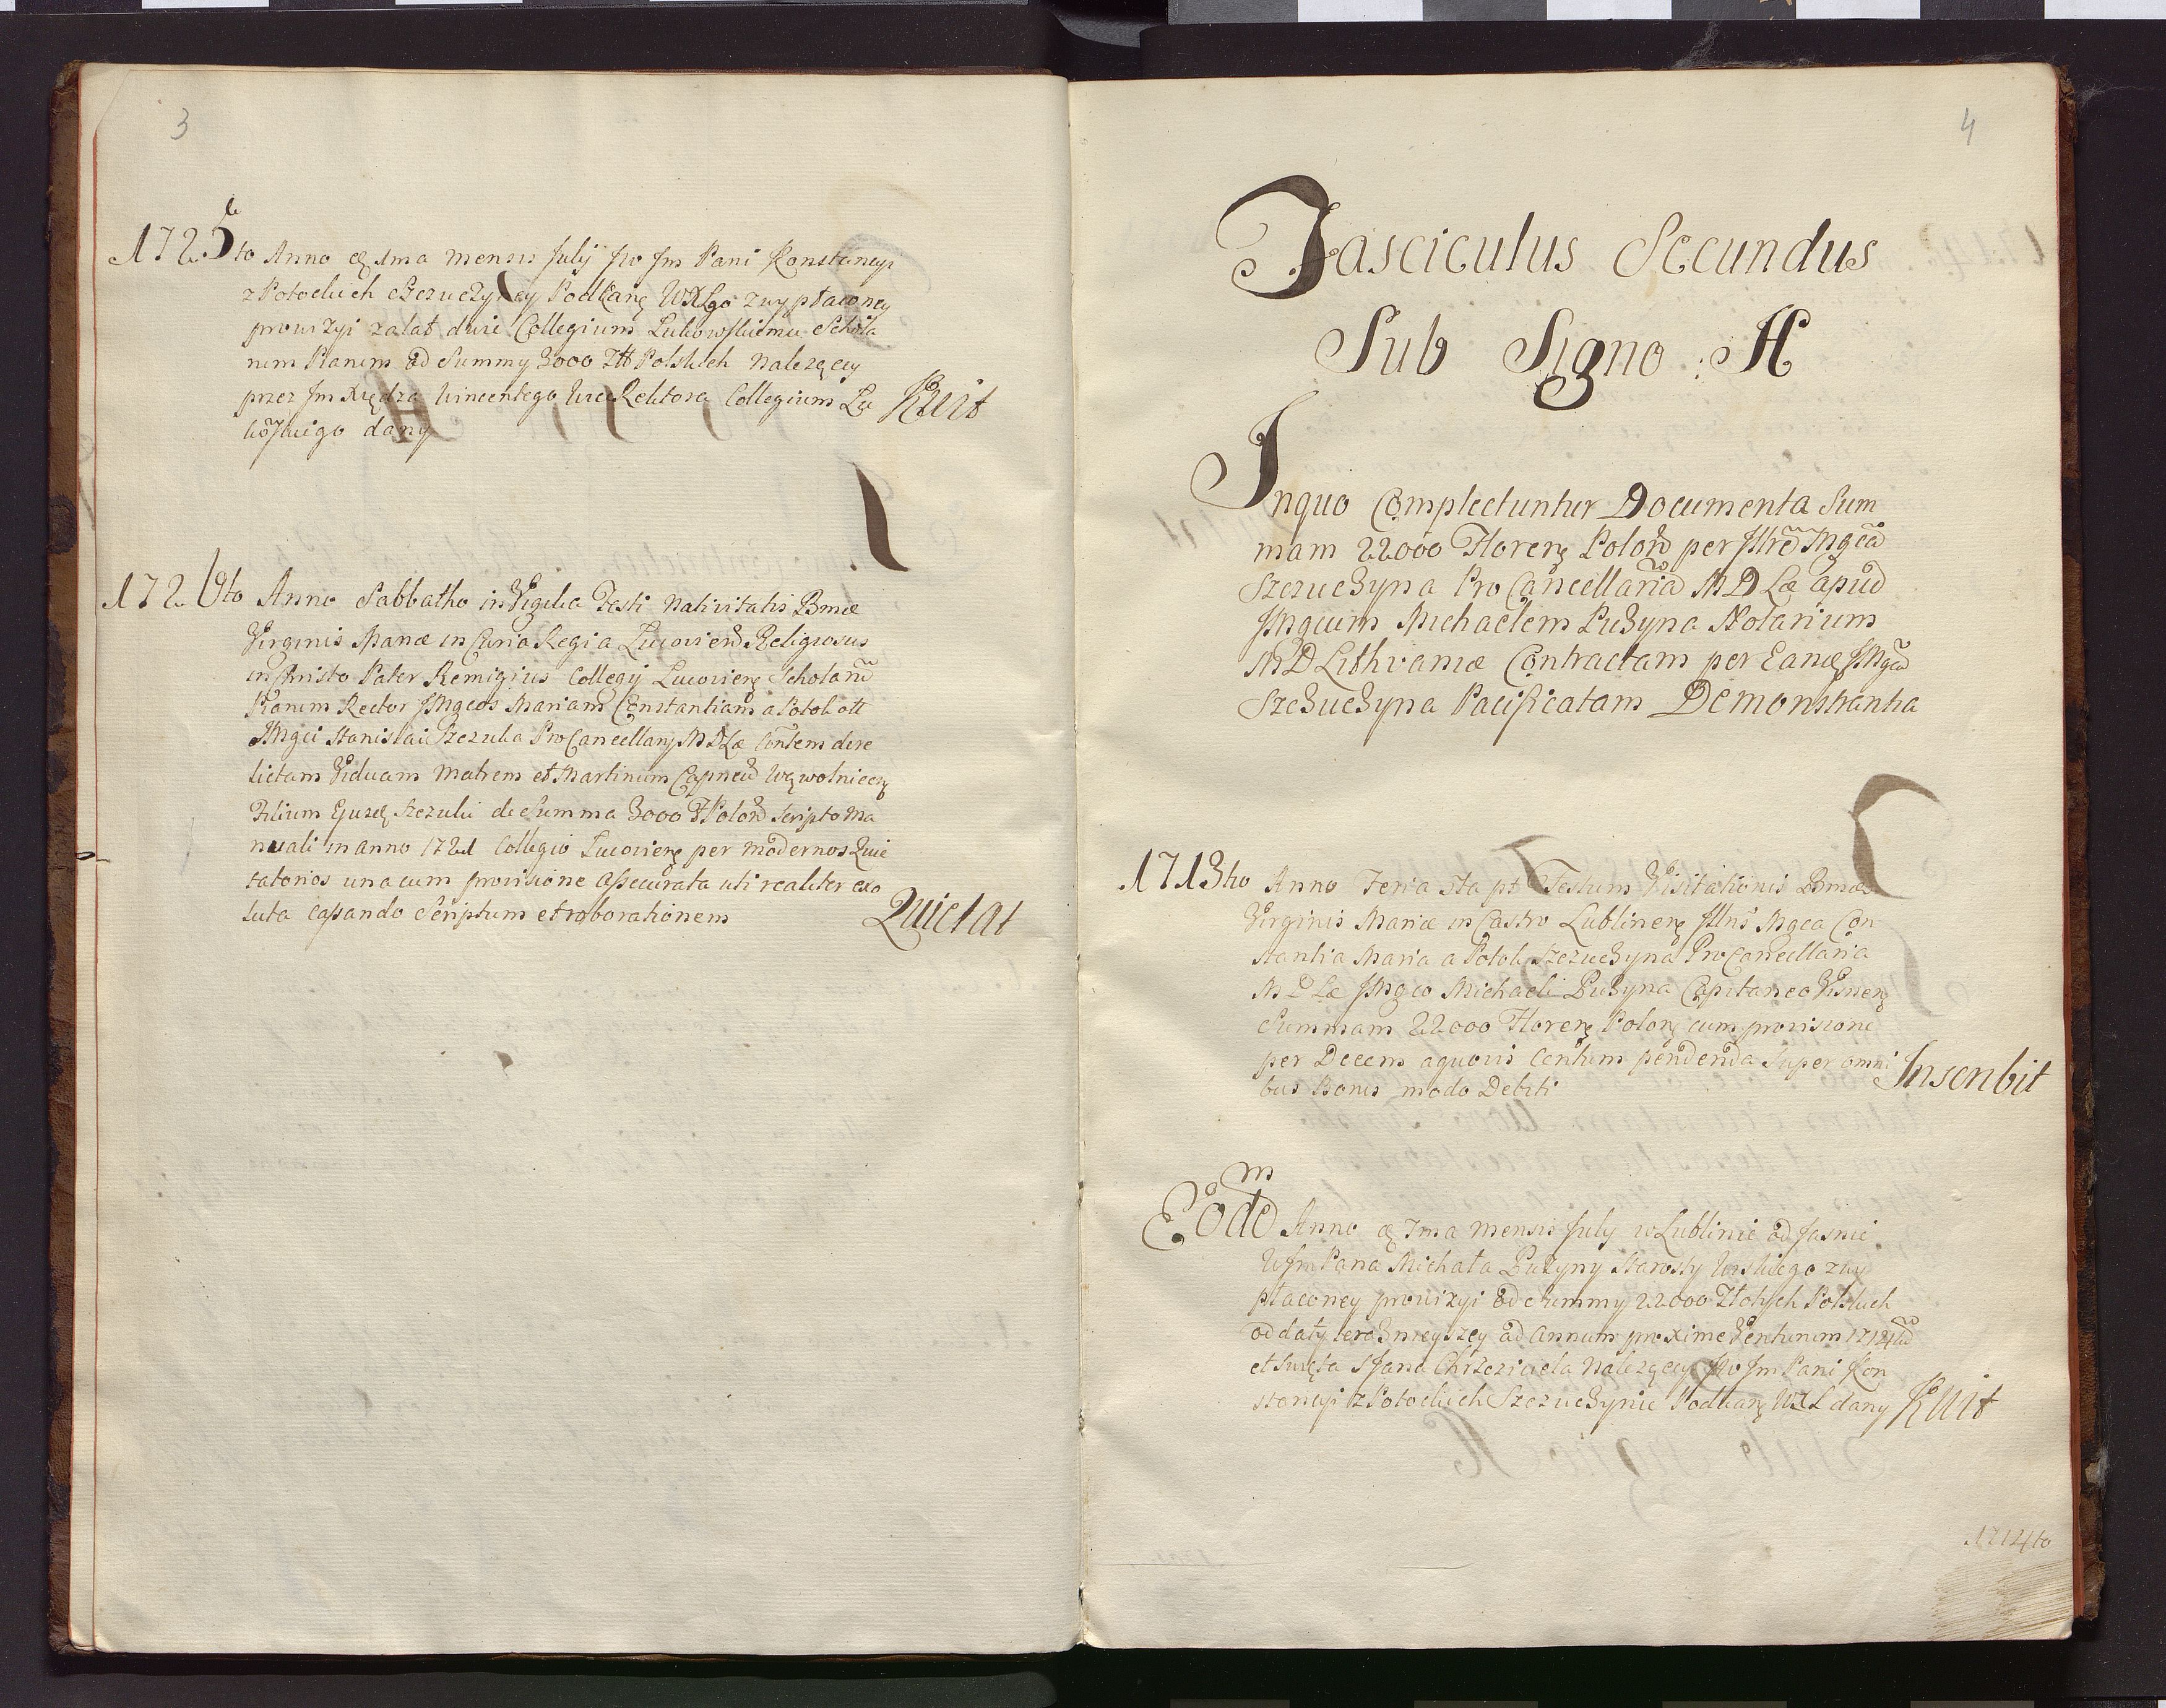 3
1725to Anno 1ma Mensis July Jw Jm Pani Konstancyi
z Potockich Szczuczyney Podkanę WXLgo z wypłaconey
prowizyi za lat dwie Collegium Łukowskiemu Schola
rum Piarum od Summy 3000 Złł Polskich należącey
przez Jm Xiędza Wincentego Vice Rektora Collegium Łu
kowskiego dany
Kwit
172 6to Anno Sabbatho in Vigilia Festi Nativitatis Bmæ
Virginis Mariæ in Curia Regia Religiosus
in Christo Pater Remigius Collegij Scholarũ
Piarum Rector Mariam Constantiam a Potok ott
Mgci Stanislai Szczuka ProCancellarij MDLæ dere
lictam Viduam Matrem et Martinum
Filium Szczuki de Summa 3000 Polon Scripto Ma
nuali in Anno 1721 Collegio per modernos Quie
tatorios una cum provisione assecurata uti realiter exo
luta cassando Scriptum et roborationem
Quietat
4
Fasciculus Secundus
Sub Signo : H
Inquo Complectuntur Documenta Sum
mam 22000 Florenę Polon per
Szczuczyna ProCancellaria MDLæ apud
Michaelem Puzyna Notarium
MD Lithvaniæ Contractam per
Szczuczyna Pacificatam Demonstrantia
1713tio Anno Feria 6ta pt Festum Visitationis Bmæ
Virginis Mariæ in Castro Lublinenę Mgca Con
stantia Maria a Potok Szczuczyna ProCancellaria
MDLæ Michaeli Puzyna Capitaneo
Summam 22000 Florenę Polonę cum provisione
per Decem a quovis Centum pendenda Super omni
bus Bonis modo Debiti
Inscribit
Eodem Anno 7ma Mensis July w Lublinie od Jasnie
W Jm Pana Michała Puzyny Starosty z wy
płaconey prowizyi od Summy 22000 Złotych Polskich
od daty teraznieyszey ad Annum proxime Venturum 1714tũ
et Swięta S Jana Chrzciciela należącey Jw Jm Pani Kon
stancyi z Potockich Szczuczynie Podkanę WXL dany
Kwit
1714to